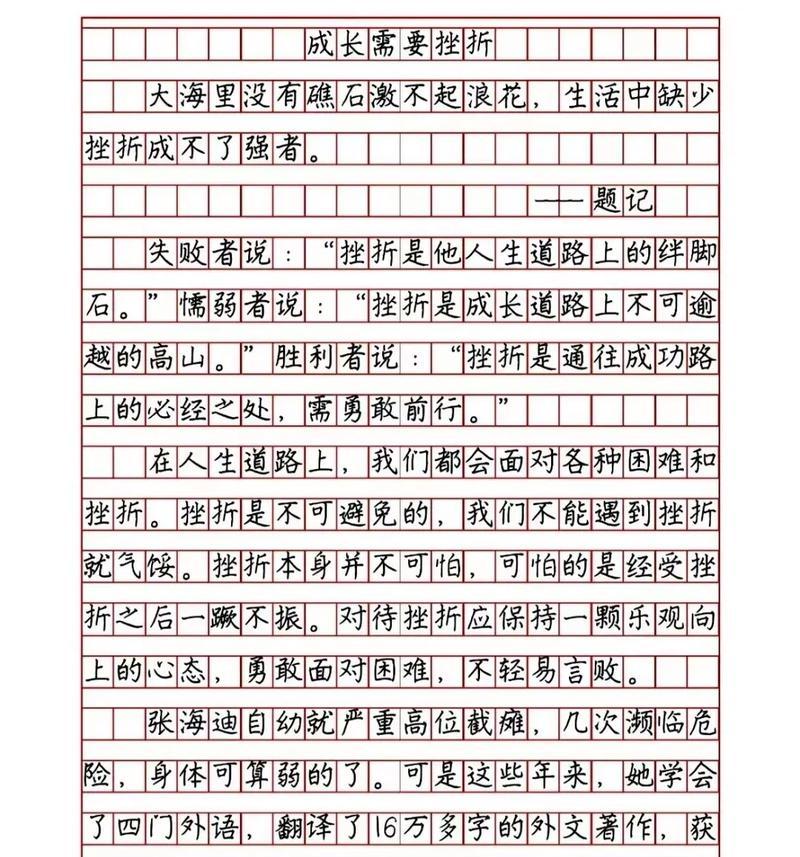 成长需要挫折
大海里没有礁石激不起浪花，生活中缺少
挫折成不了强者。
——题记
失败者说：“挫折是他人生道路上的绊脚
石。”懦弱者说：“挫折是成长道路上不可逾
越的高山。”胜利者说：“挫折是通往成功路
上的必经之处，需勇敢前行。”
在人生道路上，我们都会面对各种困难和
挫折。挫折是不可避免的，我们不能遇到挫折
就气馁。挫折本身并不可怕，可怕的是经受挫
折之后一蹶不振。对待挫折应保持一颗乐观向
上的心态，勇敢面对困难，不轻易言败。
张海迪自幼就严重高位截瘫，几次濒临危
险，身体可算弱的了。可是这些年来，她学会
了四门外语，翻译了16万多字的外文著作，获